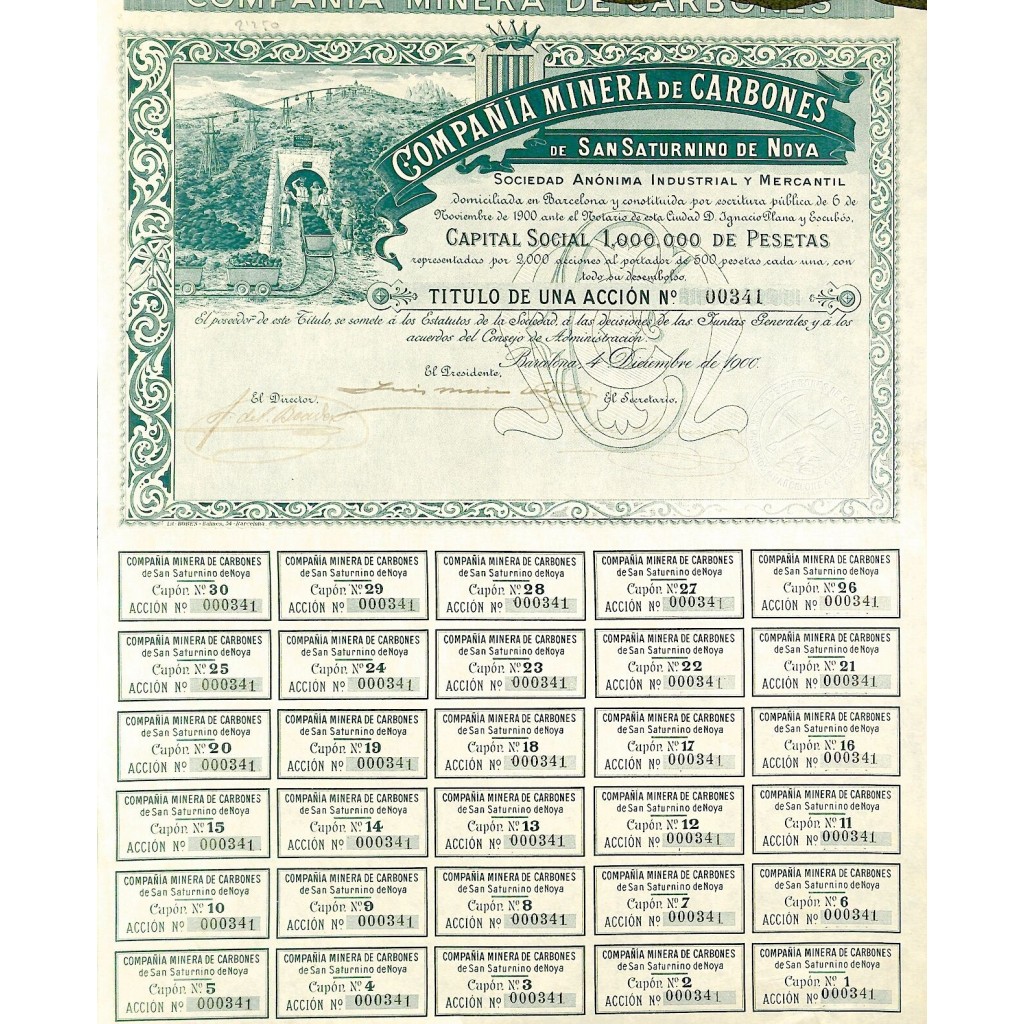 COMPAÑIA MINERA DE CARBONES
2'250
COMPAÑÍA MINERA DE CARBONES
DE SAN SATURNINO DE NOYA
SOCIEDAD ANÓNIMA INDUSTRIAL Y MERCANTIL
domiciliada en Barcelona y constituída por escritura pública de 6 de
Noviembre de 1900 ante el Notario de esta Ciudad D. Ignacio Plana y Escubós.
CAPITAL SOCIAL 1.000.000 DE PESETAS
representadas por 2,000 acciones al portador de 500 pesetas cada una, con
todo su desembolso.
TITULO DE UNA ACCIÓN Nº 00341
El poseedor de este Título, se somete á los Estatutos de la Sociedad, á las decisiones de las Juntas Generales y á los
acuerdos del Consejo de Administración.
Barcelona, 4 Diciembre de 1900.
El Presidente,
El Director,
El Secretario,
Balmes, 54-Barcelona
COMPAÑÍA MINERA DE CARBONES COMPAÑÍA MINERA DE CARBONES COMPAÑÍA MINERA DE CARBONES COMPAÑÍA MINERA DE CARBONES COMPAÑÍA MINERA DE CARBONES
de San Saturnino de Noya de San Saturnino de Noya de San Saturnino de Noya de San Saturnino de Noya de San Saturnino de Noya
Cupón Nº 30 Cupón Nº 29 Cupón Nº 28 Cupón Nº 27 Cupón Nº 26
ACCIÓN Nº 000341 ACCIÓN Nº 000341 ACCIÓN Nº 000341 ACCIÓN Nº 000341 ACCIÓN Nº 000341
COMPAÑÍA MINERA DE CARBONES COMPAÑÍA MINERA DE CARBONES COMPAÑÍA MINERA DE CARBONES COMPAÑÍA MINERA DE CARBONES COMPAÑÍA MINERA DE CARBONES
de San Saturnino de Noya de San Saturnino de Noya de San Saturnino de Noya de San Saturnino de Noya de San Saturnino de Noya
Cupón Nº 25 Cupón Nº 24 Cupón Nº 23 Cupón Nº 22 Cupón Nº 21
ACCIÓN Nº 000341 ACCIÓN Nº 000341 ACCIÓN Nº 000341 ACCIÓN Nº 000341 ACCIÓN Nº 000341
COMPAÑÍA MINERA DE CARBONES COMPAÑÍA MINERA DE CARBONES COMPAÑÍA MINERA DE CARBONES COMPAÑÍA MINERA DE CARBONES COMPAÑÍA MINERA DE CARBONES
de San Saturnino de Noya de San Saturnino de Noya de San Saturnino de Noya de San Saturnino de Noya de San Saturnino de Noya
Cupón Nº 20 Cupón Nº 19 Cupón Nº 18 Cupón Nº 17 Cupón Nº 16
ACCIÓN Nº 000341 ACCIÓN Nº 000341 ACCIÓN Nº 000341 ACCIÓN Nº 000341 ACCIÓN Nº 000341
COMPAÑÍA MINERA DE CARBONES COMPAÑÍA MINERA DE CARBONES COMPAÑÍA MINERA DE CARBONES COMPAÑÍA MINERA DE CARBONES COMPAÑÍA MINERA DE CARBONES
de San Saturnino de Noya de San Saturnino de Noya de San Saturnino de Noya de San Saturnino de Noya de San Saturnino de Noya
Cupón Nº 15 Cupón Nº 14 Cupón Nº 13 Cupón Nº 12 Cupón Nº 11
ACCIÓN Nº 000341 ACCIÓN Nº 000341 ACCIÓN Nº 000341 ACCIÓN Nº 000341 ACCIÓN Nº 000341
COMPAÑÍA MINERA DE CARBONES COMPAÑÍA MINERA DE CARBONES COMPAÑÍA MINERA DE CARBONES COMPAÑÍA MINERA DE CARBONES COMPAÑÍA MINERA DE CARBONES
de San Saturnino de Noya de San Saturnino de Noya de San Saturnino de Noya de San Saturnino de Noya de San Saturnino de Noya
Cupón Nº 10 Cupón Nº 9 Cupón Nº 8 Cupón Nº 7 Cupón Nº 6
ACCIÓN Nº 000341 ACCIÓN Nº 000341 ACCIÓN Nº 000341 ACCIÓN Nº 000341 ACCIÓN Nº 000341
COMPAÑÍA MINERA DE CARBONES COMPAÑÍA MINERA DE CARBONES COMPAÑÍA MINERA DE CARBONES COMPAÑÍA MINERA DE CARBONES COMPAÑÍA MINERA DE CARBONES
de San Saturnino de Noya de San Saturnino de Noya de San Saturnino de Noya de San Saturnino de Noya de San Saturnino de Noya
Cupón Nº 5 Cupón Nº 4 Cupón Nº 3 Cupón Nº 2 Cupón Nº 1
ACCIÓN Nº 000341 ACCIÓN Nº 000341 ACCIÓN Nº 000341 ACCIÓN Nº 000341 ACCIÓN Nº 000341